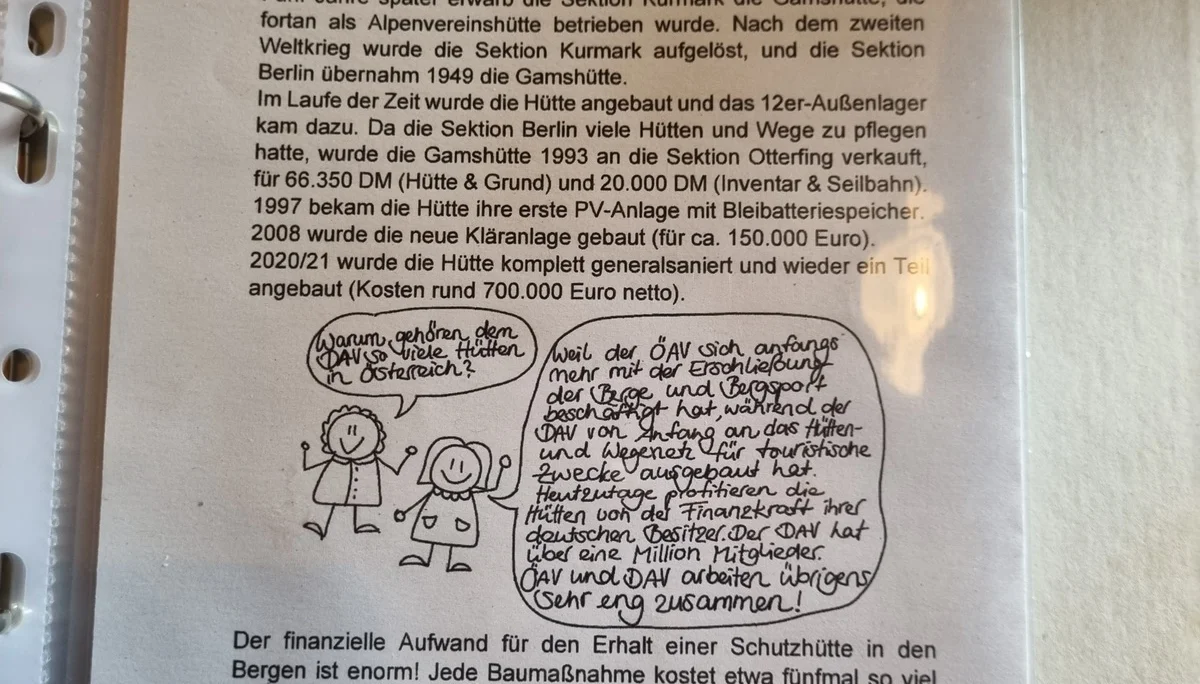 später erwarb die Sektion Kurmark die Gamshütte, die
fortan als Alpenvereinshütte betrieben wurde. Nach dem zweiten
Weltkrieg wurde die Sektion Kurmark aufgelöst, und die Sektion
Berlin übernahm 1949 die Gamshütte.
Im Laufe der Zeit wurde die Hütte angebaut und das 12er-Außenlager
kam dazu. Da die Sektion Berlin viele Hütten und Wege zu pflegen
hatte, wurde die Gamshütte 1993 an die Sektion Otterfing verkauft,
für 66.350 DM (Hütte & Grund) und 20.000 DM (Inventar & Seilbahn).
1997 bekam die Hütte ihre erste PV-Anlage mit Bleibatteriespeicher.
2008 wurde die neue Kläranlage gebaut (für ca. 150.000 Euro).
2020/21 wurde die Hütte komplett generalsaniert und wieder ein Teil
angebaut (Kosten rund 700.000 Euro netto).
Warum gehören dem
DAV so viele Hütten
in Österreich?
Weil der ÖAV sich anfangs
mehr mit der Erschließung
der Berge und Bergsport
beschäftigt hat, während der
DAV von Anfang an das Hütten-
und Wegenetz für touristische
Zwecke ausgebaut hat.
Heutzutage profitieren die
Hütten von der Finanzkraft ihrer
deutschen Besitzer. Der DAV hat
über eine Million Mitglieder.
ÖAV und DAV arbeiten übrigens
sehr eng zusammen!
Der finanzielle Aufwand für den Erhalt einer Schutzhütte in den
Bergen ist enorm! Jede Baumaßnahme kostet etwa fünfmal so viel